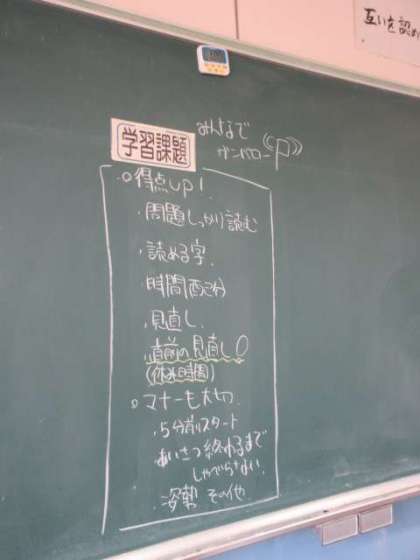 互いを認め
学習課題
みんなで
ガンバロー
○得点up!
・問題しっかり読む
・読める字
・時間配分
・見直し
・直前の見直し
(休み時間)
○マナーも大切
・5分前スタート
あいさつ終わるまで
しゃべらない
・姿勢 その他